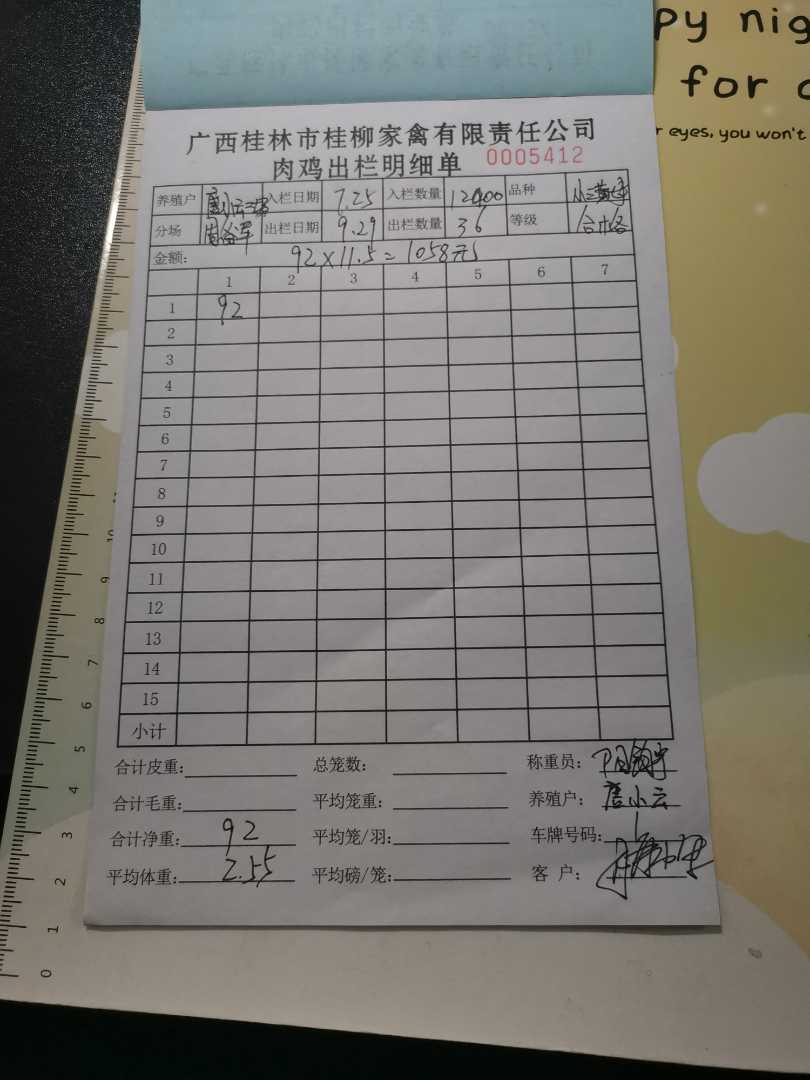 py nig
for
r eyes, you won't
广西桂林市桂柳家禽有限责任公司
肉鸡出栏明细单 0005412
养殖户 唐小云 入栏日期 7.25 入栏数量 12400 品种
分场 出栏日期 9.29 出栏数量 36 等级 合格
金额: 92×11.5=1058元
1 2 3 4 5 6 7
1 92
2
3
4
5
6
7
8
9
10
11
12
13
14
15
小计
合计皮重: 总笼数: 称重员:
合计毛重: 平均笼重: 养殖户: 唐小云
合计净重: 92 平均笼/羽: 车牌号码:
平均体重: 2.55 平均磅/笼: 客 户:
0 1 2 3 4 5 6 7 8 9 10